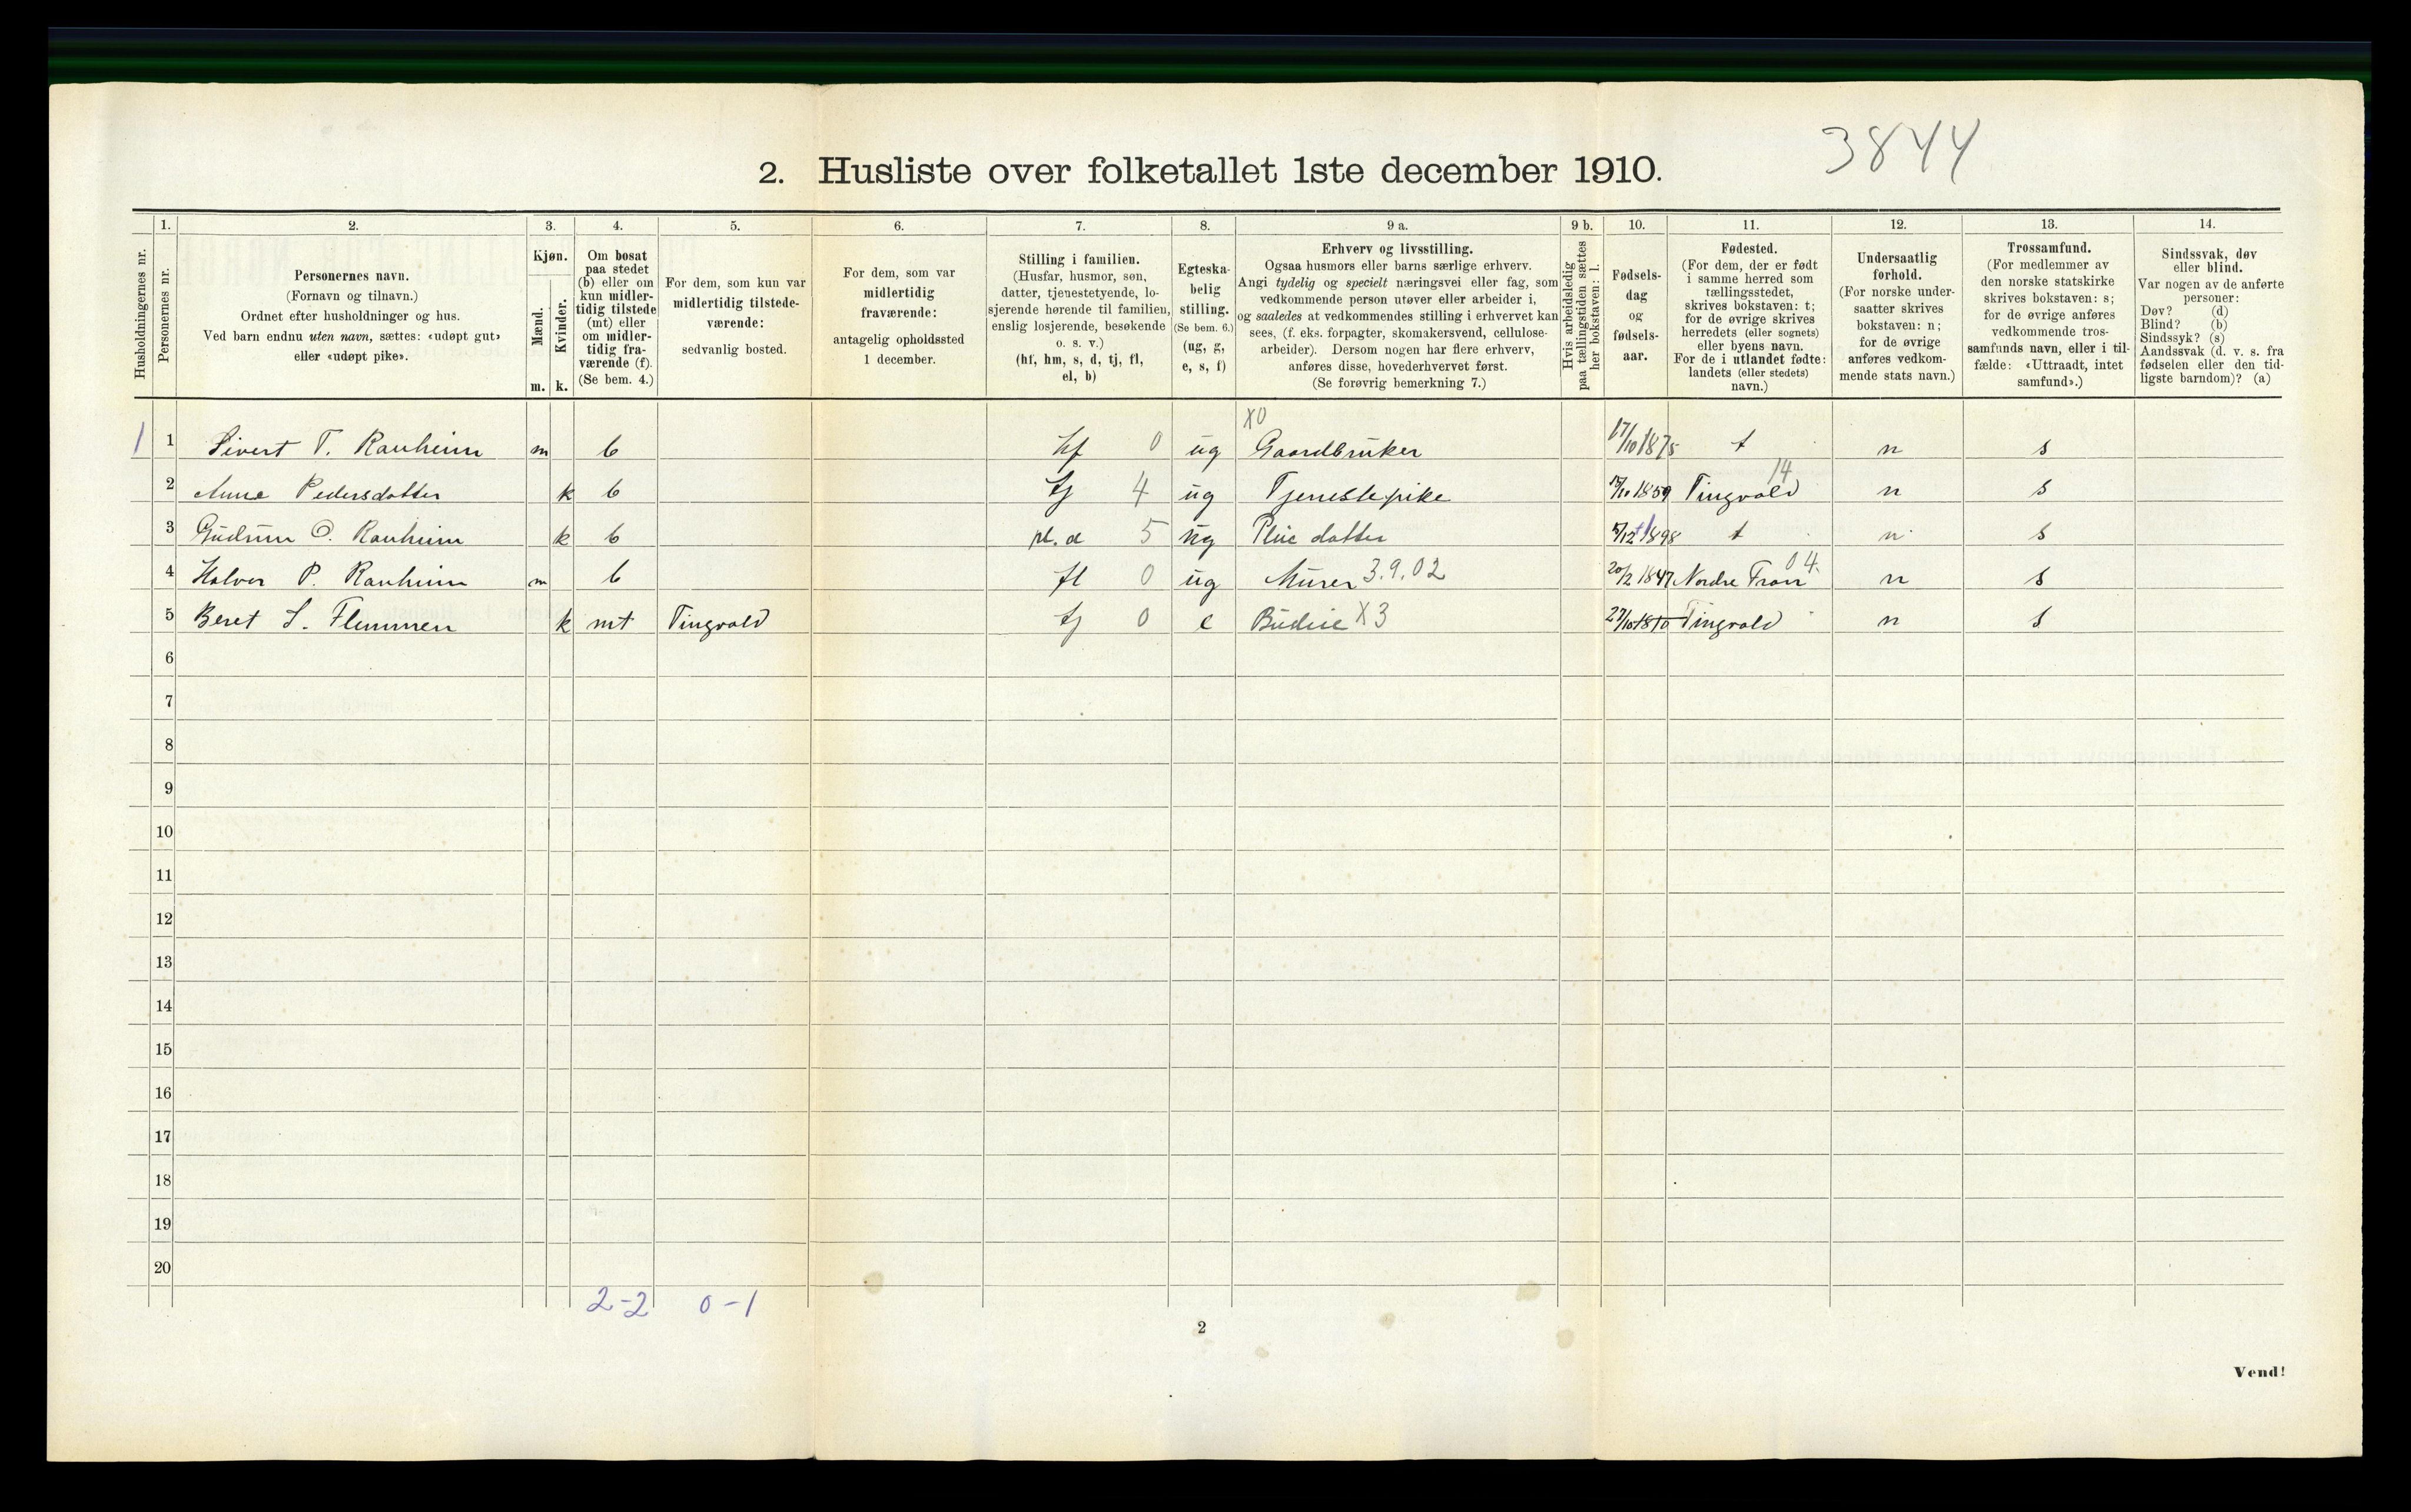 3844
2. Husliste over folketallet 1ste december 1910.
Husholdningernes nr.
1.
Personernes nr.
2.
Personernes navn.
(Fornavn og tilnavn.)
Ordnet efter husholdninger og hus.
Ved barn endnu uten navn, sættes: «udøpt gut»
eller «udøpt pike».
3.
Kjøn.
Mænd.
Kvinder.
m. k.
4.
Om bosat
paa stedet
(b) eller om
kun midler-
tidig tilstede
(mt) eller
om midler-
tidig fra-
værende (f).
(Se bem. 4.)
5.
For dem, som kun var
midlertidig tilstede-
værende:
sedvanlig bosted.
6.
For dem, som var
midlertidig
fraværende:
antagelig opholdssted
1 december.
7.
Stilling i familien.
(Husfar, husmor, søn,
datter, tjenestetyende, lo-
sjerende hørende til familien,
enslig losjerende, besøkende
o. s. v.)
(hf, hm, s, d, tj, fl,
el, b)
8.
Egteska-
belig
stilling.
(Se bem. 6.)
(ug, g,
e, s, f)
9 a.
Erhverv og livsstilling.
Ogsaa husmors eller barns særlige erhverv.
Angi tydelig og specielt næringsvei eller fag, som
vedkommende person utøver eller arbeider i,
og saaledes at vedkommendes stilling i erhvervet kan
sees, (f. eks. forpagter, skomakersvend, cellulose-
arbeider). Dersom nogen har flere erhverv,
anføres disse, hovederhvervet først.
(Se forøvrig bemerkning 7.)
9 b.
Hvis arbeidsledig
paa tællingstiden sættes
her bokstaven: l.
10.
Fødsels-
dag
og
fødsels-
aar.
11.
Fødested.
(For dem, der er født
i samme herred som
tællingsstedet,
skrives bokstaven: t;
for de øvrige skrives
herredets (eller sognets)
eller byens navn.
For de i utlandet fødte:
landets (eller stedets)
navn.)
12.
Undersaatlig
forhold.
(For norske under-
saatter skrives
bokstaven: n;
for de øvrige
anføres vedkom-
mende stats navn.)
13.
Trossamfund.
(For medlemmer av
den norske statskirke
skrives bokstaven: s;
for de øvrige anføres
vedkommende tros-
samfunds navn, eller i til-
fælde: «Uttraadt, intet
samfund».)
14.
Sindssvak, døv
eller blind.
Var nogen av de anførte
personer:
Døv? (d)
Blind? (b)
Sindssyk? (s)
Aandssvak (d. v. s. fra
fødselen eller den tid-
ligste barndom)? (a)
X0
1 1 Sivert T. Ranheim m b hf 0 ug Gaardbruker 17/10 1875 t n s
14
2 Anne Pedersdatter k b tj 4 ug Tjenestepike 1859 Tingvold n s
3 Gudrun O. Ranheim k b pl. d 5 ug Pleie datter 5/12 1898 t n s
4 Halvor P. Ranheim m b fl 0 ug Murer 3.9.02 20/2 1847 Nordre Fron 04. n s
5 Beret S. Flemmen k mt Tingvold tj 0 e Budeie X3 27/10 1810 Tingvold n s
6
7
8
9
10
11
12
13
14
15
16
17
18
19
20
2-2 0-1
2
Vend!